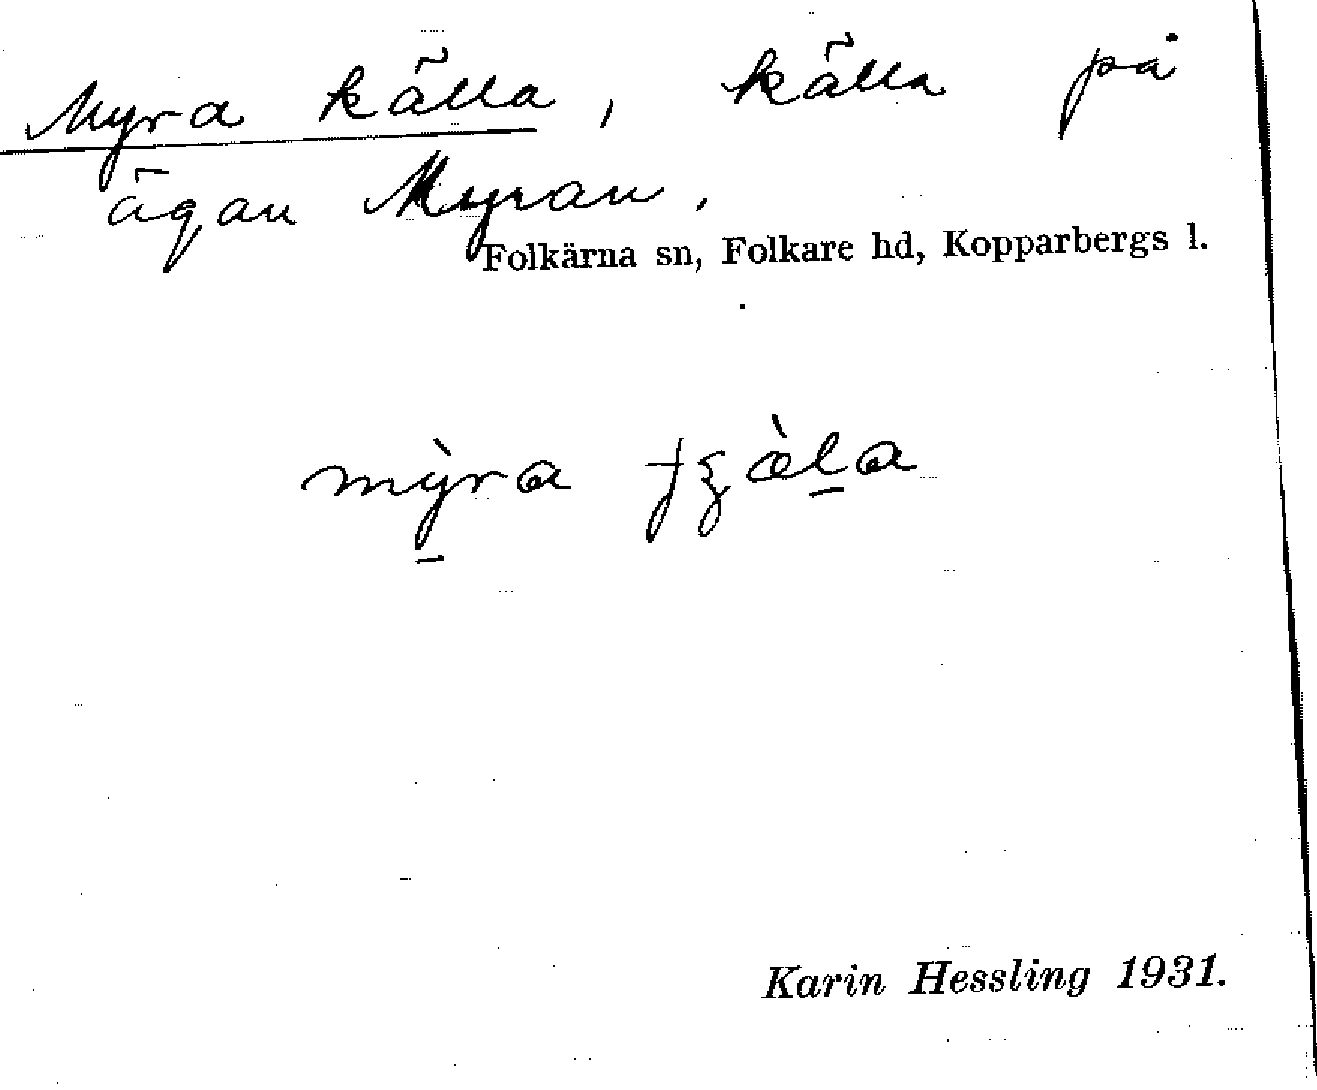 Myra källa, källa på
ägan Myran.
Folkärna sn, Folkare hd, Kopparbergs l.
mỳra
Karin Hessling 1931.